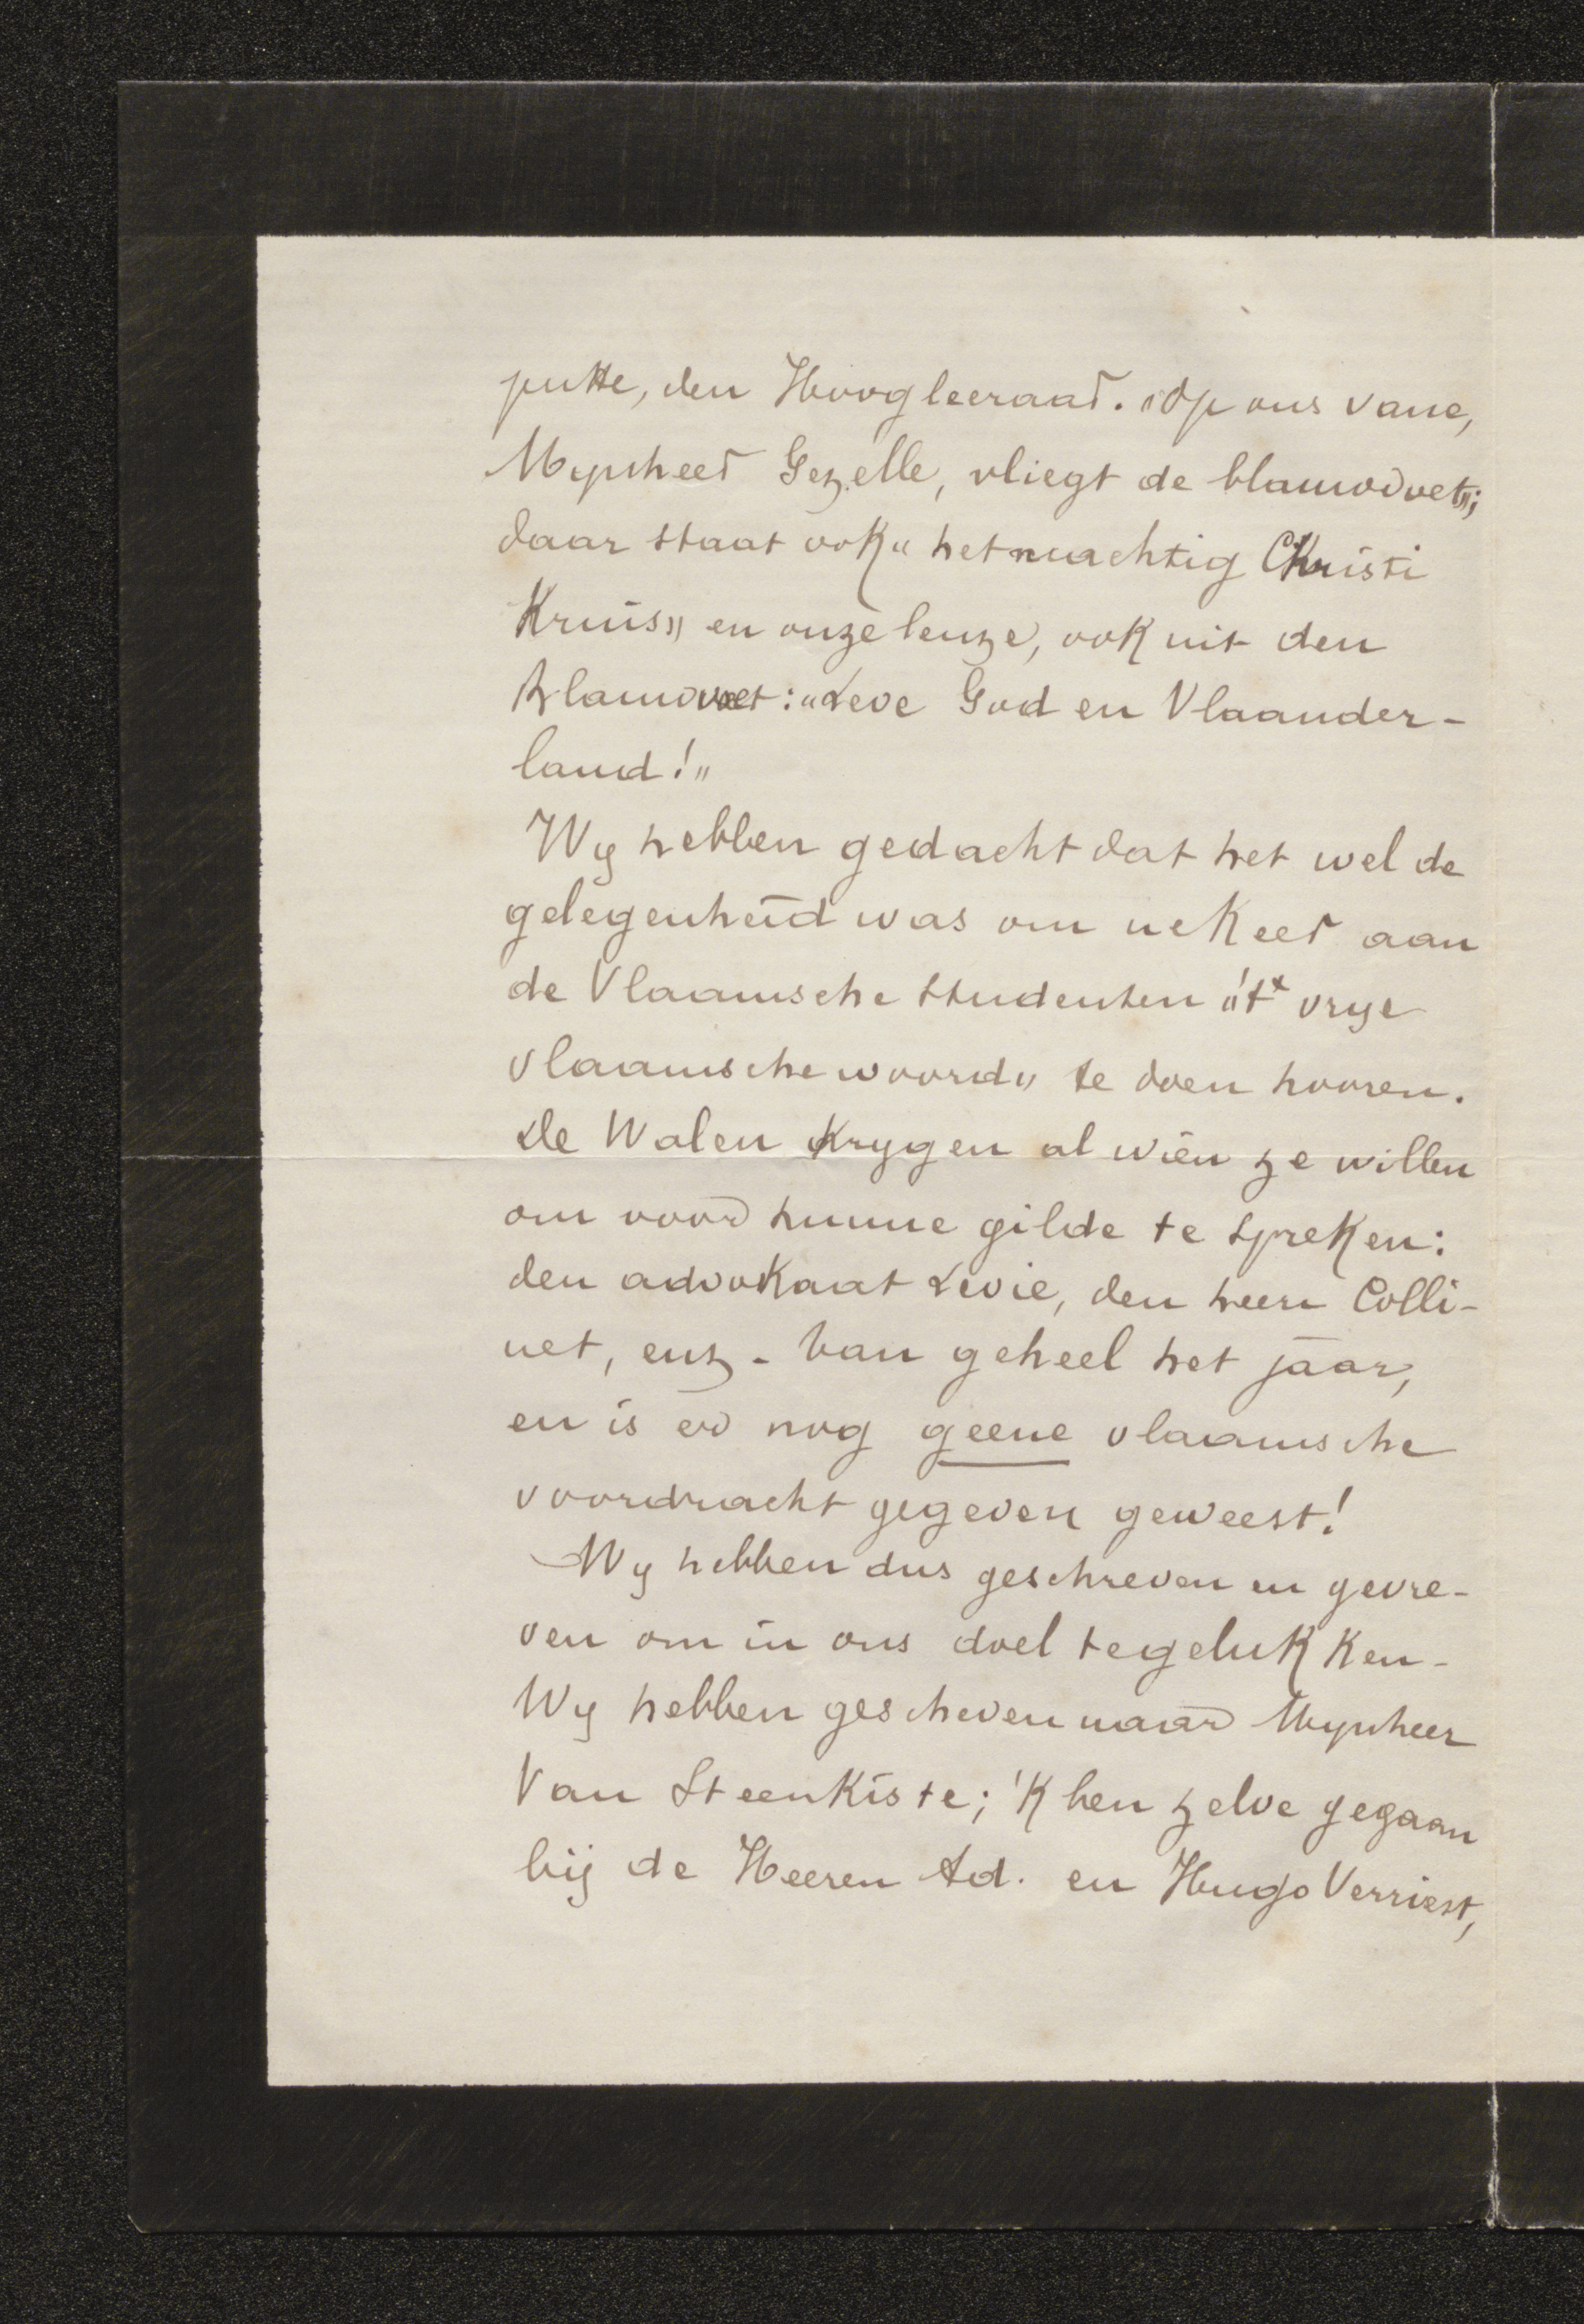 putte, den Hoogleeraar. "Op ons vane,
Mynheer Gezelle, vliegt de blauwvoet";
daar staat ook "het machtig Christi
Kruis" en onze leuze, ook uit den
Blauwvoet: "Leve God en Vlaander-
land!"
Wy hebben gedacht dat het wel de
gelegenheid was om ne keer aan
de Vlaamsche studenten "'t vrye
vlaamsche woord" te doen hooren.
De Walen krygen al wien ze willen
om voor hunne gilde te spreken:
den advokaat Levie, den heer Colli-
net, enz. Van geheel het jaar,
en is er nog geene vlaamsche
voordracht gegeven geweest!
Wy hebben dus geschreven en gevre-
ven om in ons doel te gelukken.
Wy hebben gescheven naar Mynheer
Van Steenkiste; 'k ben zelve gegaan
bij de Heeren Ad. en Hugo Verriest,